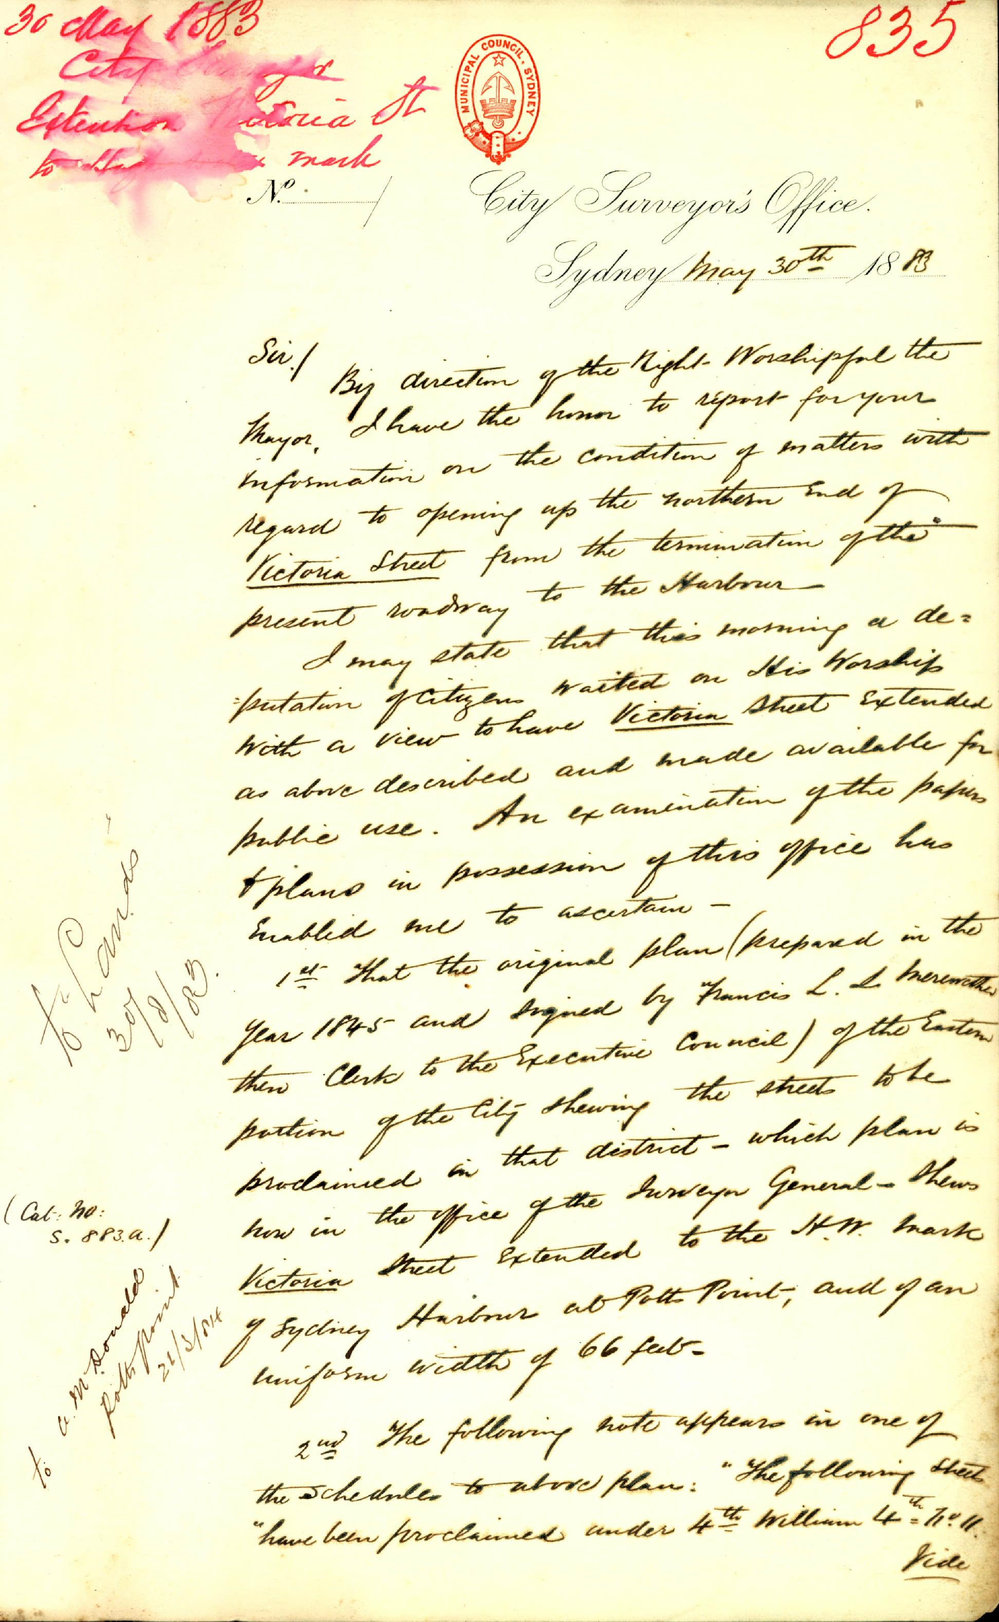 30 May 1883
City
Extension Victoria St
to mark
835
MUNICIPAL COUNCIL. SYDNEY
No. /
City Surveyor's Office.
Sydney May 30th 1883
Sir/
By direction of the Right Worshipful the
Mayor, I have the honor to report for your
information on the condition of matters with
regard to opening up the northern End of
Victoria Street from the termination of the
present roadway to the Harbour—
I may state that this morning a de=
=putation of Citizens waited on His Worship
with a view to have Victoria Street Extended
as above described and made available for
public use. An examination of the papers
& plans in possession of this office has
Enabled me to ascertain —
1st That the original plan (prepared in the
year 1845 and signed by Francis L. S. Merewether
then Clerk to the Executive Council) of the Eastern
portion of the City shewing the streets to be
proclaimed in that district — which plan is
now in the office of the Surveyor General — Shews
Victoria Street Extended to the H.W. Mark
of Sydney Harbour at Potts Point, and of an
uniform width of 66 feet—
2nd The following note appears in one of
the Schedules to above plan: "The following Streets
"have been proclaimed under 4th William 4th No. 11.
Vide
To Lands
30/8/83.
(Cat: No:
S. 883.a.)
to A. McDonald
Potts Point
21/3/84